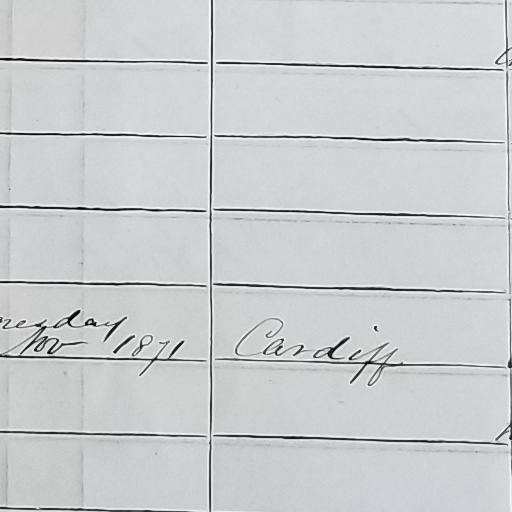 nesday
Nov 1871
Cardiff